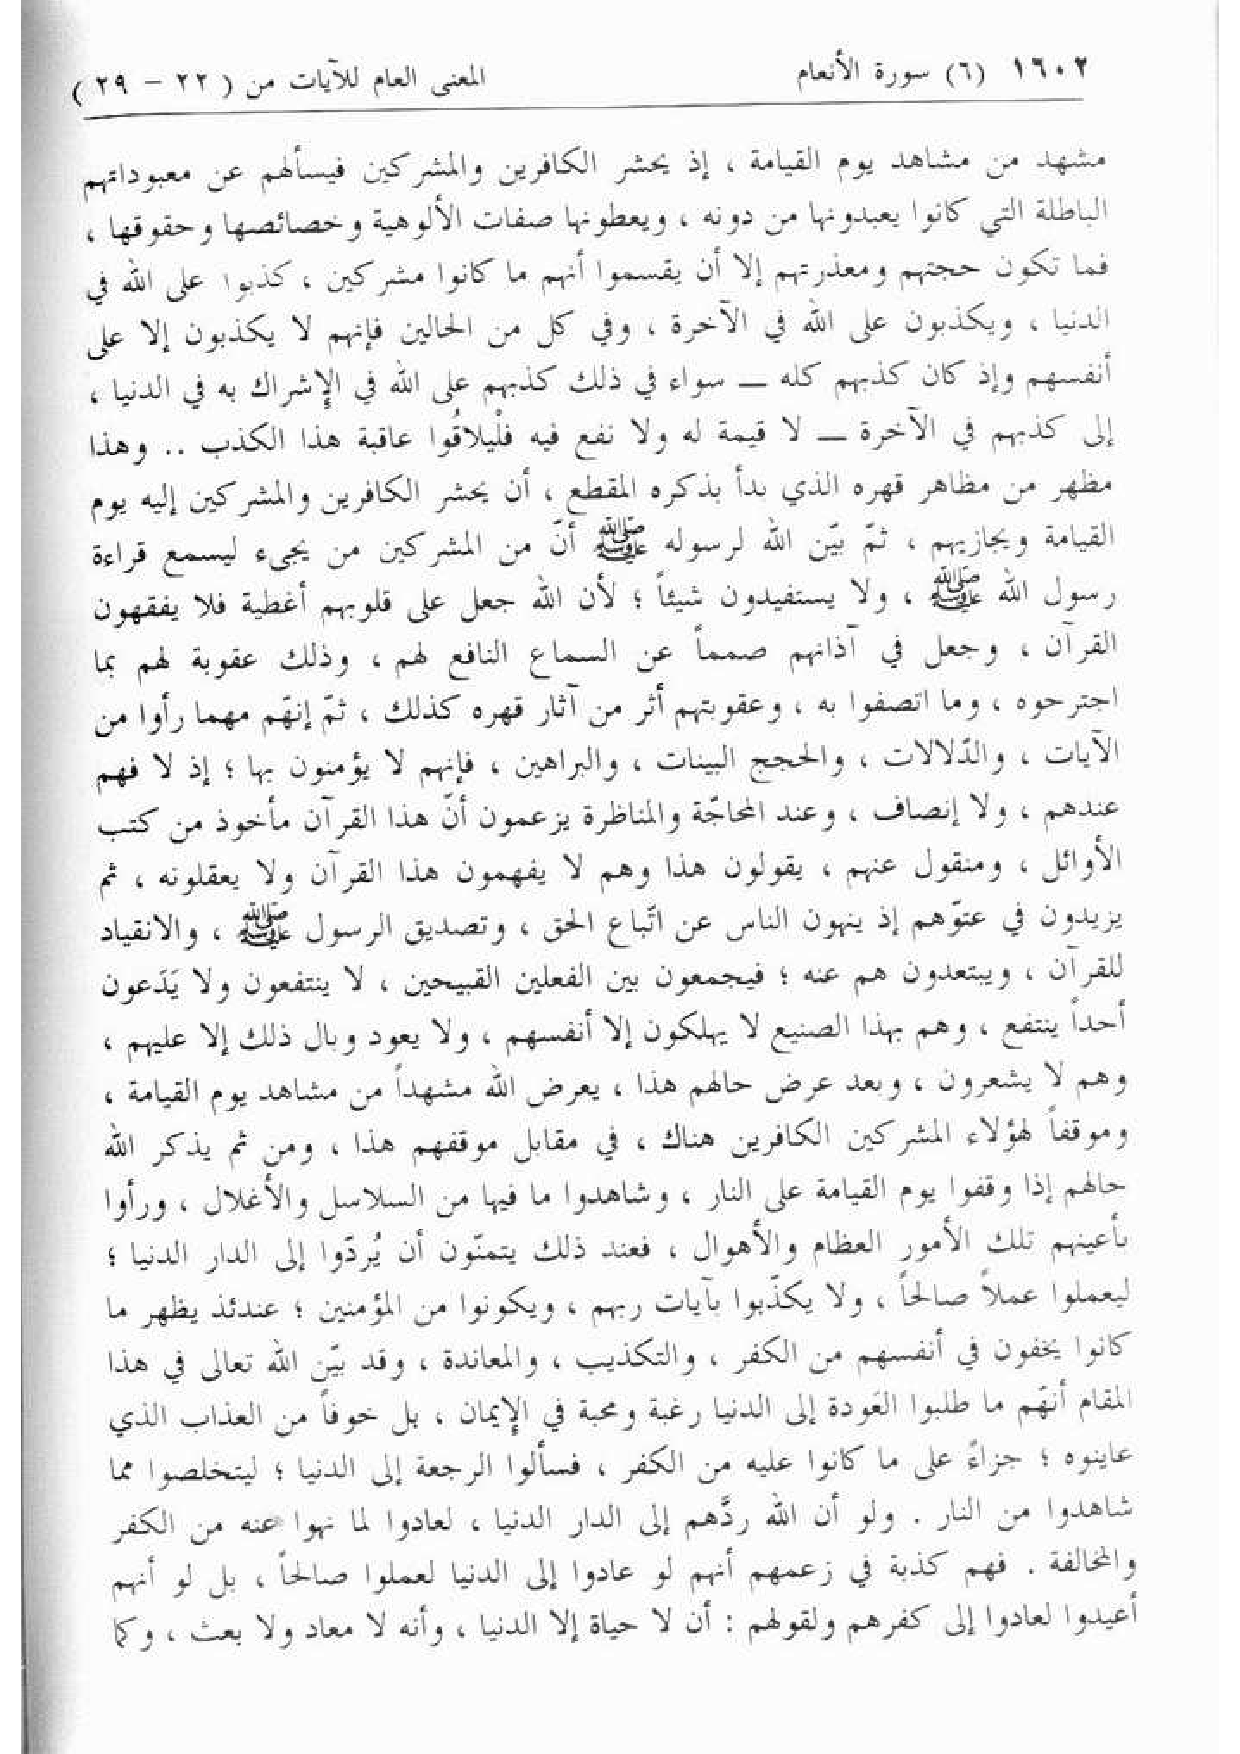 ١٦٠٢ (٦) سورة الأنعام المعنى العام للآيات من ( ٢٢ – ٢٩ )
مشهد من مشاهد يوم القيامة ، إذ يحشر الكافرين والمشركين فيسألهم عن معبوداتهم
الباطلة التي كانوا يعبدونها من دونه ، ويعطونها صفات الألوهية وخصائصها وحقوقها ،
فما تكون حجتهم ومعذرتهم إلا أن يقسموا أنهم ما كانوا مشركين ، كذبوا على الله في
الدنيا ، ويكذبون على الله في الآخرة ، وفي كل من الحالين فإنهم لا يكذبون إلا على
أنفسهم وإذ كان كذبهم كله – سواء في ذلك كذبهم على الله في الإشراك به في الدنيا ،
إلى كذبهم في الآخرة – لا قيمة له ولا نفع فيه فلْيلاقُوا عاقبة هذا الكذب .. وهذا
مظهر من مظاهر قهره الذي بدأ بذكره المقطع ، أن يحشر الكافرين والمشركين إليه يوم
القيامة ويجازيهم ، ثمّ بيّن الله لرسوله ﷺ أنّ من المشركين من يجىء ليسمع قراءة
رسول الله ﷺ ، ولا يستفيدون شيئاً ؛ لأن الله جعل على قلوبهم أغطية فلا يفقهون
القرآن ، وجعل في آذانهم صمماً عن السماع النافع لهم ، وذلك عقوبة لهم بما
اجترحوه ، وما اتصفوا به ، وعقوبتهم أثر من آثار قهره كذلك ، ثمّ إنهّم مهما رأوا من
الآيات ، والدّلالات ، والحجج البينات ، والبراهين ، فإنهم لا يؤمنون بها ؛ إذ لا فهم
عندهم ، ولا إنصاف ، وعند المحاجّة والمناظرة يزعمون أنّ هذا القرآن مأخوذ من كتب
الأوائل ، ومنقول عنهم ، يقولون هذا وهم لا يفهمون هذا القرآن ولا يعقلونه ، ثم
يزيدون في عتوّهم إذ ينهون الناس عن اتّباع الحق ، وتصديق الرسول ﷺ ، والانقياد
للقرآن ، ويبتعدون هم عنه ؛ فيجمعون بين الفعلين القبيحين ، لا ينتفعون ولا يَدَعون
أحداً ينتفع ، وهم بهذا الصنيع لا يهلكون إلا أنفسهم ، ولا يعود وبال ذلك إلا عليهم ،
وهم لا يشعرون ، وبعد عرض حالهم هذا ، يعرض الله مشهداً من مشاهد يوم القيامة ،
وموقفاً لهؤلاء المشركين الكافرين هناك ، في مقابل موقفهم هذا ، ومن ثم يذكر الله
حالهم إذا وقفوا يوم القيامة على النار ، وشاهدوا ما فيها من السلاسل والأغلال ، ورأوا
بأعينهم تلك الأمور العظام والأهوال ، فعند ذلك يتمنّون أن يُردّوا إلى الدار الدنيا ؛
ليعملوا عملاً صالحاً ، ولا يكذّبوا بآيات ربهم ، ويكونوا من المؤمنين ؛ عندئذ يظهر ما
كانوا يخفون في أنفسهم من الكفر ، والتكذيب ، والمعاندة ، وقد بيّن الله تعالى في هذا
المقام أنهّم ما طلبوا العَودة إلى الدنيا رغبة ومحبة في الإيمان ، بل خوفاً من العذاب الذي
عاينوه ؛ جزاءً على ما كانوا عليه من الكفر ، فسألوا الرجعة إلى الدنيا ؛ ليتخلصوا مما
شاهدوا من النار . ولو أن الله ردَّهم إلى الدار الدنيا ، لعادوا لما نهوا عنه من الكفر
والمخالفة . فهم كذبة في زعمهم أنهم لو عادوا إلى الدنيا لعملوا صالحاً ، بل لو أنهم
أعيدوا لعادوا إلى كفرهم ولقولهم : أن لا حياة إلا الدنيا ، وأنه لا معاد ولا بعث ، وكما